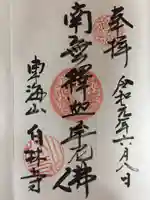 奉拝
令和元年六月八日
南無釋迦牟尼佛
東海山
白林寺